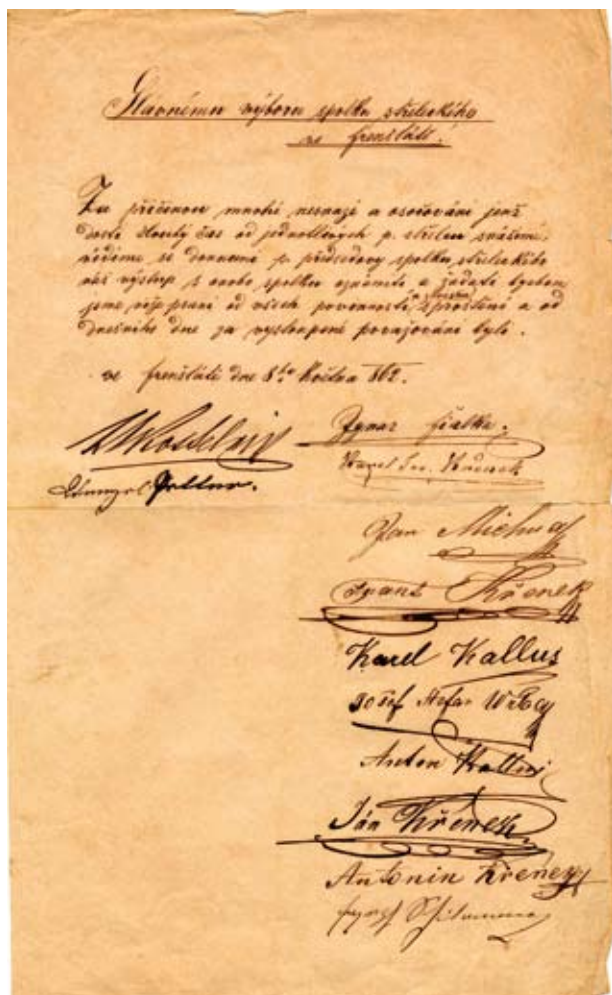 Slávnému výboru spolku střeleckého
ve frenštátě.
Za příčinou mnohé nesnázi a osočování jenž
dosti dlouhý čas od jednotlivých p. střelců snášeme,
vidíme se donuceni p. předsedovy spolku střeleckého
náš výstup s osobo spolku oznámit a žádati bychom
jsme od všech povinností sproštění a od
dnešního dne za vystoupené považováni byli.
ve frenštátě dne 8ho Května 862.
Ignaz fialka.
Karel Jos.
Jan
Franz Křenek
Karel Kallus
Josef
Anton
Ján Křenek
Antonin Křenek